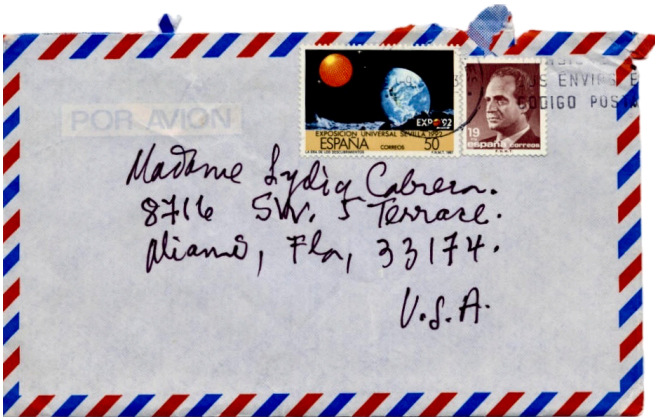 POR AVION
EXPO 92
EXPOSICION UNIVERSAL SEVILLA 1992
ESPAÑA CORREOS 50
LA ERA DE LOS DESCUBRIMIENTOS
19
españa correos
ENVIOS E
CODIGO POST
Madame Lydia Cabrera.
8716 SW. 5 Terrace.
Miami, Fla, 33174.
U.S.A.